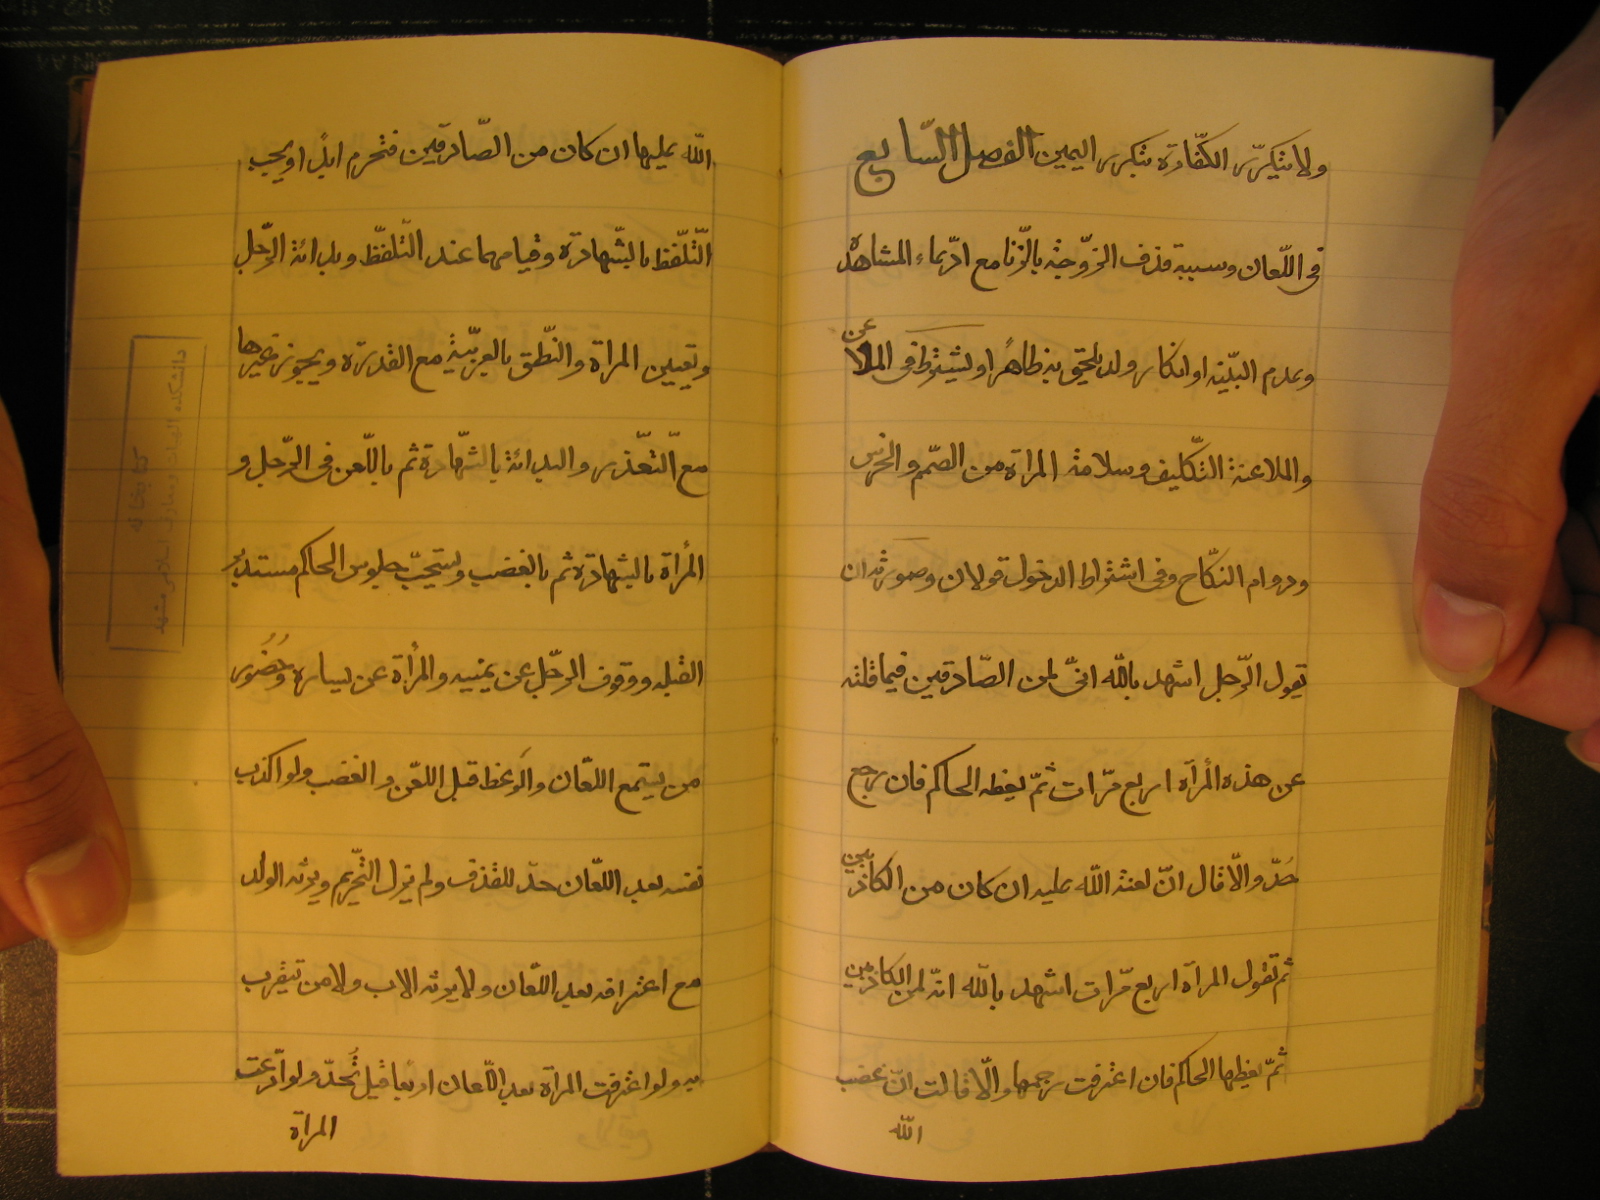 ولا يتكرّر الكفّارة بتكرر اليمين الفصل السّابع
فى اللّعان وسببه قذف الزّوجة بالزّنا مع ادّعاء المشاهدة
وعدم البيّنه او انكار ولد يلحق به ظاهرًا ويشترط فى الملاعن
والملاعنة التّكليف وسلامة المرأة من الصّمم والخرس
ودوام النكّاح وفى اشتراط الدخول قولان وصورته ان
يقول الرّجل اشهد بالله انّى لمن الصّادقين فيما قلته
عن هذه المرأة اربع مرّات ثمّ يعظه الحاكم فان رجع
حُدّ والّا قال انّ لعنة الله عليه ان كان من الكاذبين
ثم تقول المرأة اربع مرّات اشهد بالله انّه لمن الكاذبين
ثمّ يعظها الحاكم فان اعترفت رجمها والّا قالت انّ غضب
الله
الله عليها ان كان من الصّادقين فتحرم ابدًا ويجب
التّلفّظ بالشّهادة وقيامهما عند التّلفّظ وبدائة الرّجل
وتعيين المرأة والنّطق بالعربّية مع القدرة ويجوز غيرها
مع التّعذّر والبدائة بالشّهادة ثم باللّعن فى الرّجل و
المرأة بالشهادة ثم بالغضب ويستحبّ جلوس الحاكم مستدبر
القبله ووقوف الرجّل عن يمينه والمرأة عن يساره وحُضُور
من يستمع اللعّان والوَعظ قبل اللعّن والغضب ولو اكذب
نفسه بعد اللعّان حدّ للقذف ولم يزل التّحريم ويرثه الولد
مع اعترافه بعد اللّعان ولا يرثه الاب ولا من تيقرب
به ولو اعترفت المرأة بعد اللّعان اربعا قيل تُحدّ ولو ادّعت
المرأة
كتابخانه
دانشكده الهيات و معارف اسلامى مشهد